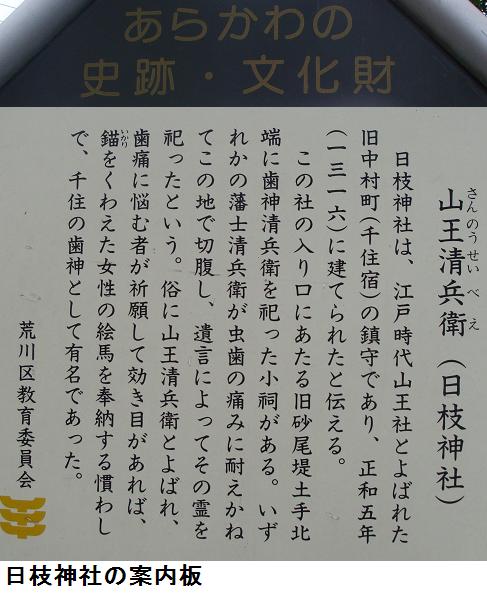 あらかわの
史跡・文化財
山王清兵衛(日枝神社)
さんのうせいべえ
日枝神社は、江戸時代山王社とよばれた
旧中村町(千住宿)の鎮守であり、正和五年
(一三一六)に建てられたと伝える。
この社の入り口にあたる旧砂尾堤土手北
端に歯神清兵衛を祀った小祠がある。いず
れかの藩士清兵衛が虫歯の痛みに耐えかね
てこの地で切腹し、遺言によってその霊を
祀ったという。俗に山王清兵衛とよばれ、
歯痛に悩む者が祈願して効き目があれば、
錨をくわえた女性の絵馬を奉納する慣わし
いかり
で、千住の歯神として有名であった。
荒川区教育委員会
日枝神社の案内板